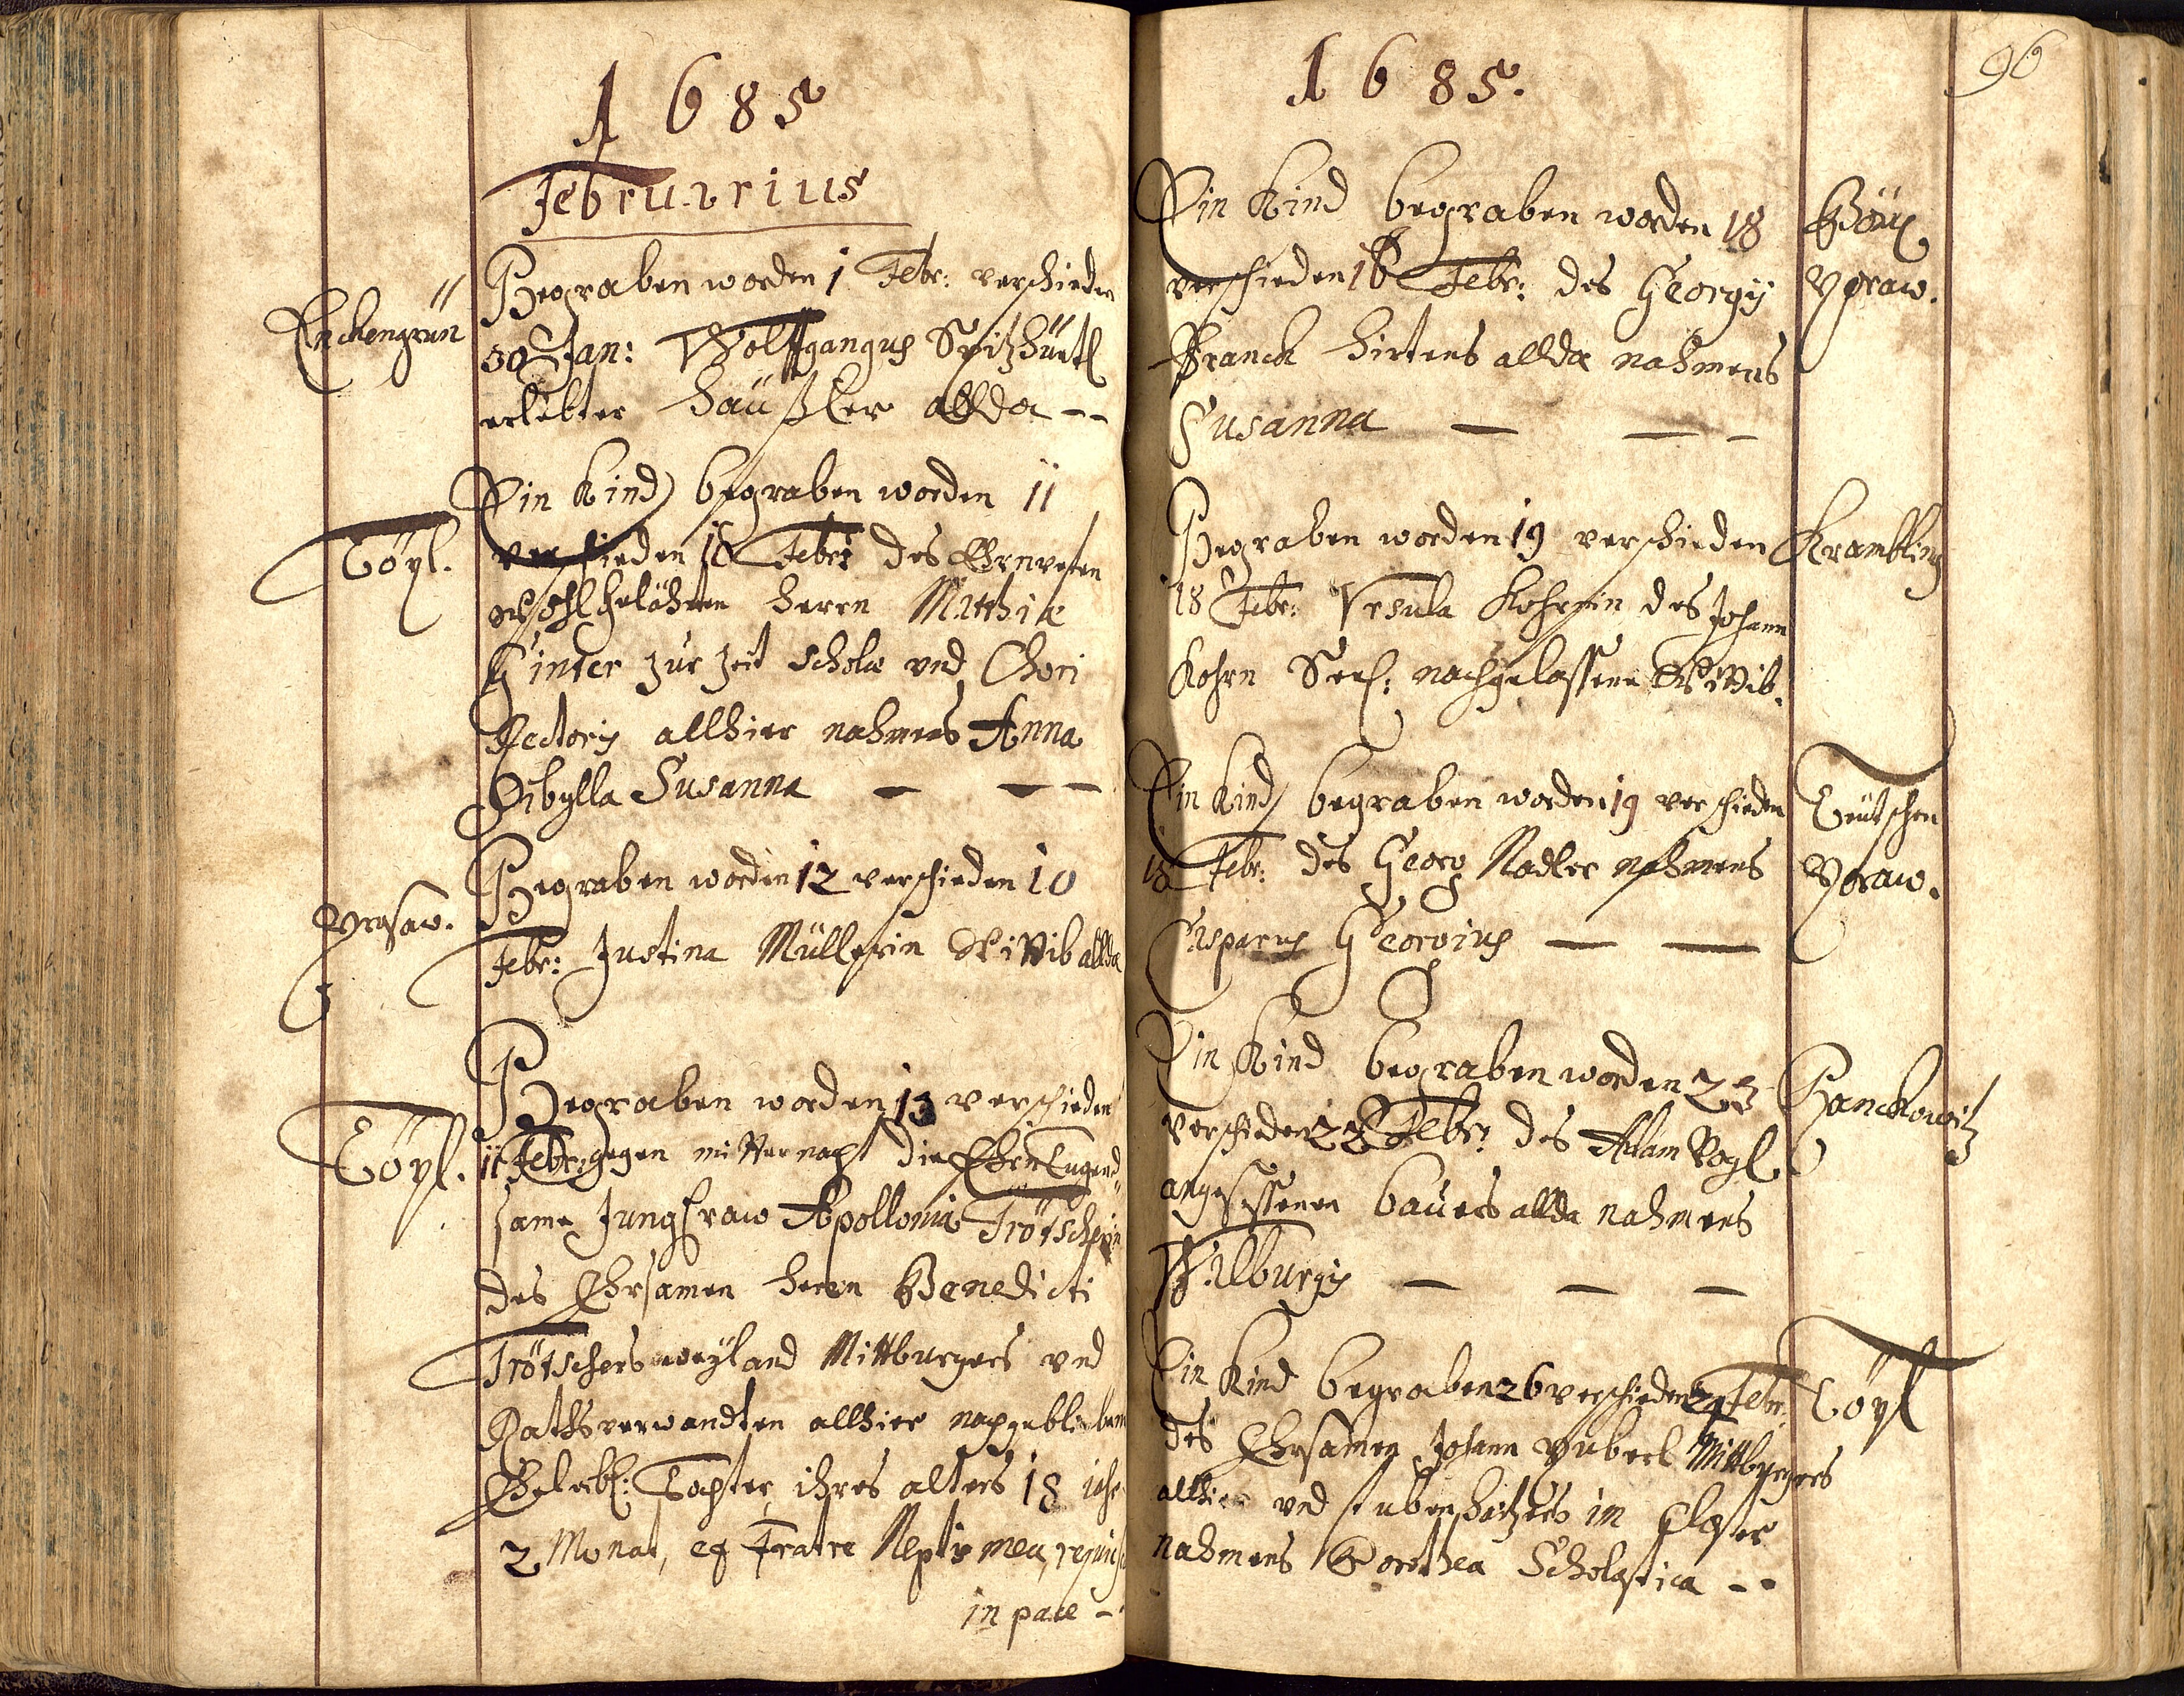 1685
Februarius
Enckengrün
Begraben worden 1 Febr: verschieden
30 Jan: Wolffgangus Spitzhüttl
erlebter Häußler allda --
Töpl.
Ein Kind begraben worden 11
verschieden 10 Febr: des Ehrnvesten
Wohlgelährten Herrn Matthiæ
Ginter zur Zeit scholæ vnd Chori
Rectoris allhier nahmens Anna
Sibylla Susanna — — —
Prosaw.
Begraben worden 12 verschieden 10
Febr: Justina Müllerin Wittib allda
Töpl.
Begraben worden 13 verschieden
11 Febr: gegen mitternacht die Ehrn Tugend
same Jungfraw Apollonia Trötscherin
des Ehrsamen Herrn Benedicti
Trötschers weyland Mittburgers vnd
Rathsverwandten allhier nachgeblieben
Ehelebl: Tochter, ihres alters 18 iahr
2 Monat, ex Fratre Neptis mea,
in pace –
96
1685.
Ein Kind begraben worden 18
verschieden 16 Febr: des Georgij
Franck Hirtens allda nahmens
Susanna — — –
Begraben worden 19 verschieden
Krambling
18 Febr: Vrsula Kohrnin des Johann
Kohrn Seel: nachgelassene Wittib.
Ein Kind begraben worden 19 verschieden
Teutschen
18 Febr: des Georg Nadler nahmens
Casparus Georgius — —
Ein Kind begraben worden 23
Hanckowitz
verschieden 22 Febr: des Adam Vogl
angesessenen bauers allda nahmens
Walburgis — — —
Ein Kind begraben 26 verschieden 24 Febr.
Töpl
des Ehrsamen Johann Mittburgers
allhier vnd stubenheitzers im Closter
nahmens Dorothea Scholastica --